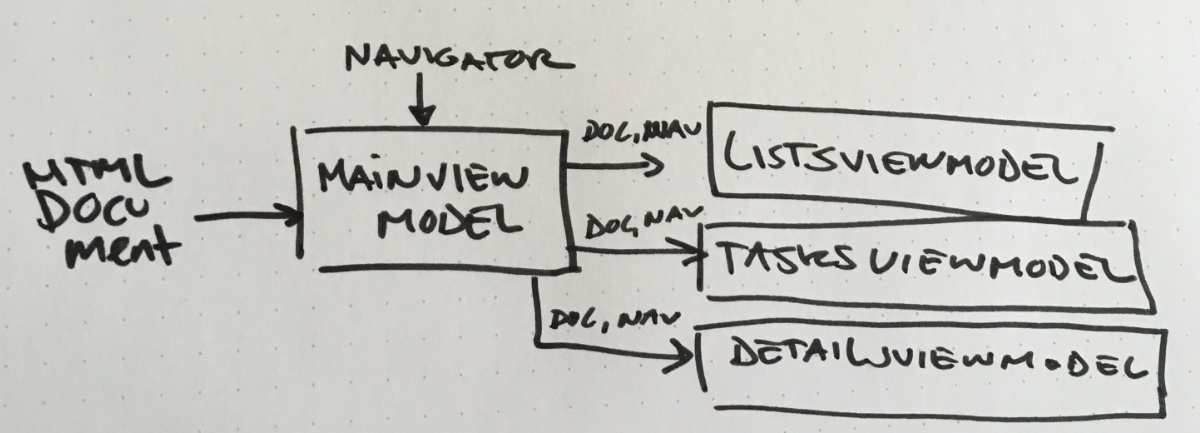 NAVIGATOR
HTML
DOCU
ment
MAINVIEW
MODEL
DOC, NAV
LISTSVIEWMODEL
DOC, NAV
TASKSVIEWMODEL
DOC, NAV
DETAILVIEWMODEL